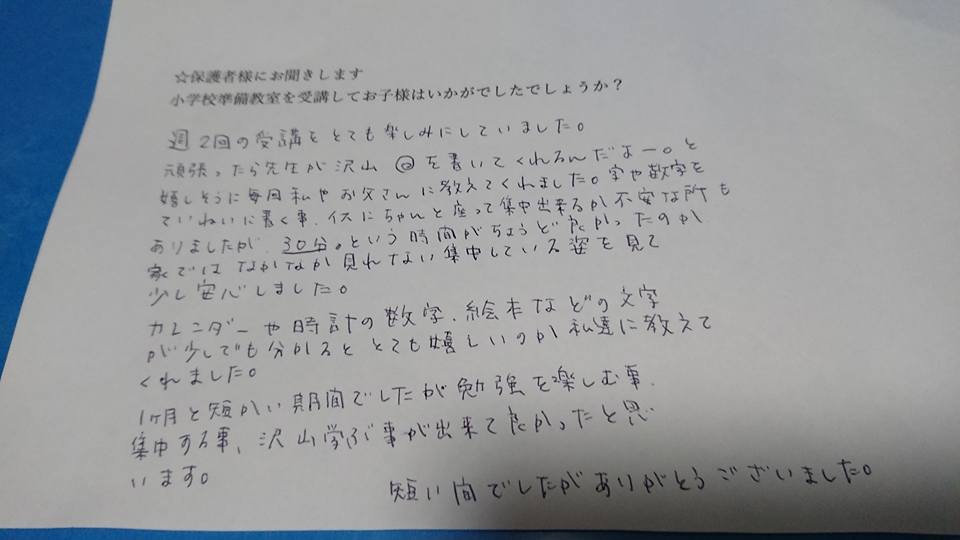 ☆保護者様にお聞きします
小学校準備教室を受講してお子様はいかがでしたでしょうか？
週2回の受講をとても楽しみにしていました。
頑張ったら先生が沢山◎を書いてくれるんだよー。と
嬉しそうに毎回私やお父さんに教えてくれました。字や数字を
ていねいに書く事、イスにちゃんと座って集中出来るか不安な所も
ありましたが、30分。という時間がちょうど良かったのか
家ではなかなか見れない集中している姿を見て
少し安心しました。
カレンダーや時計の数字、絵本などの文字
が少しでも分かるととても嬉しいのか私達に教えて
くれました。
1ヶ月と短かい期間でしたが勉強を楽しむ事、
集中する事、沢山学ぶ事が出来て良かったと思
います。
短い間でしたがありがとうございました。